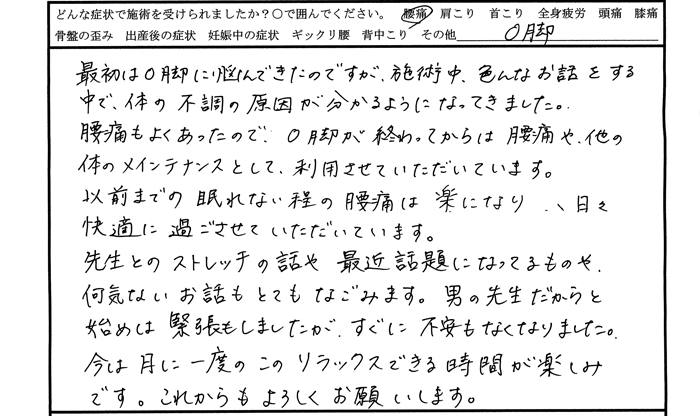 どんな症状で施術を受けられましたか？〇で囲んでください。腰痛 肩こり 首こり 全身疲労 頭痛 膝痛
骨盤の歪み 出産後の症状 妊娠中の症状 ギックリ腰 背中こり その他 O脚
最初はO脚に悩んできたのですが、施術中、色んなお話をする
中で、体の不調の原因が分かるようになってきました。
腰痛もよくあったので、O脚が終わってからは腰痛や、他の
体のメインテナンスとして、利用させていただいています。
以前までの眠れない程の腰痛は楽になり、、日々
快適に過ごさせていただいています。
先生とのストレッチの話や最近話題になってるものや、
何気ないお話もとてもなごみます。男の先生だからと
始めは緊張もしましたが、すぐに不安もなくなりました。
今は月に一度のこのリラックスできる時間が楽しみ
です。これからもよろしくお願いします。